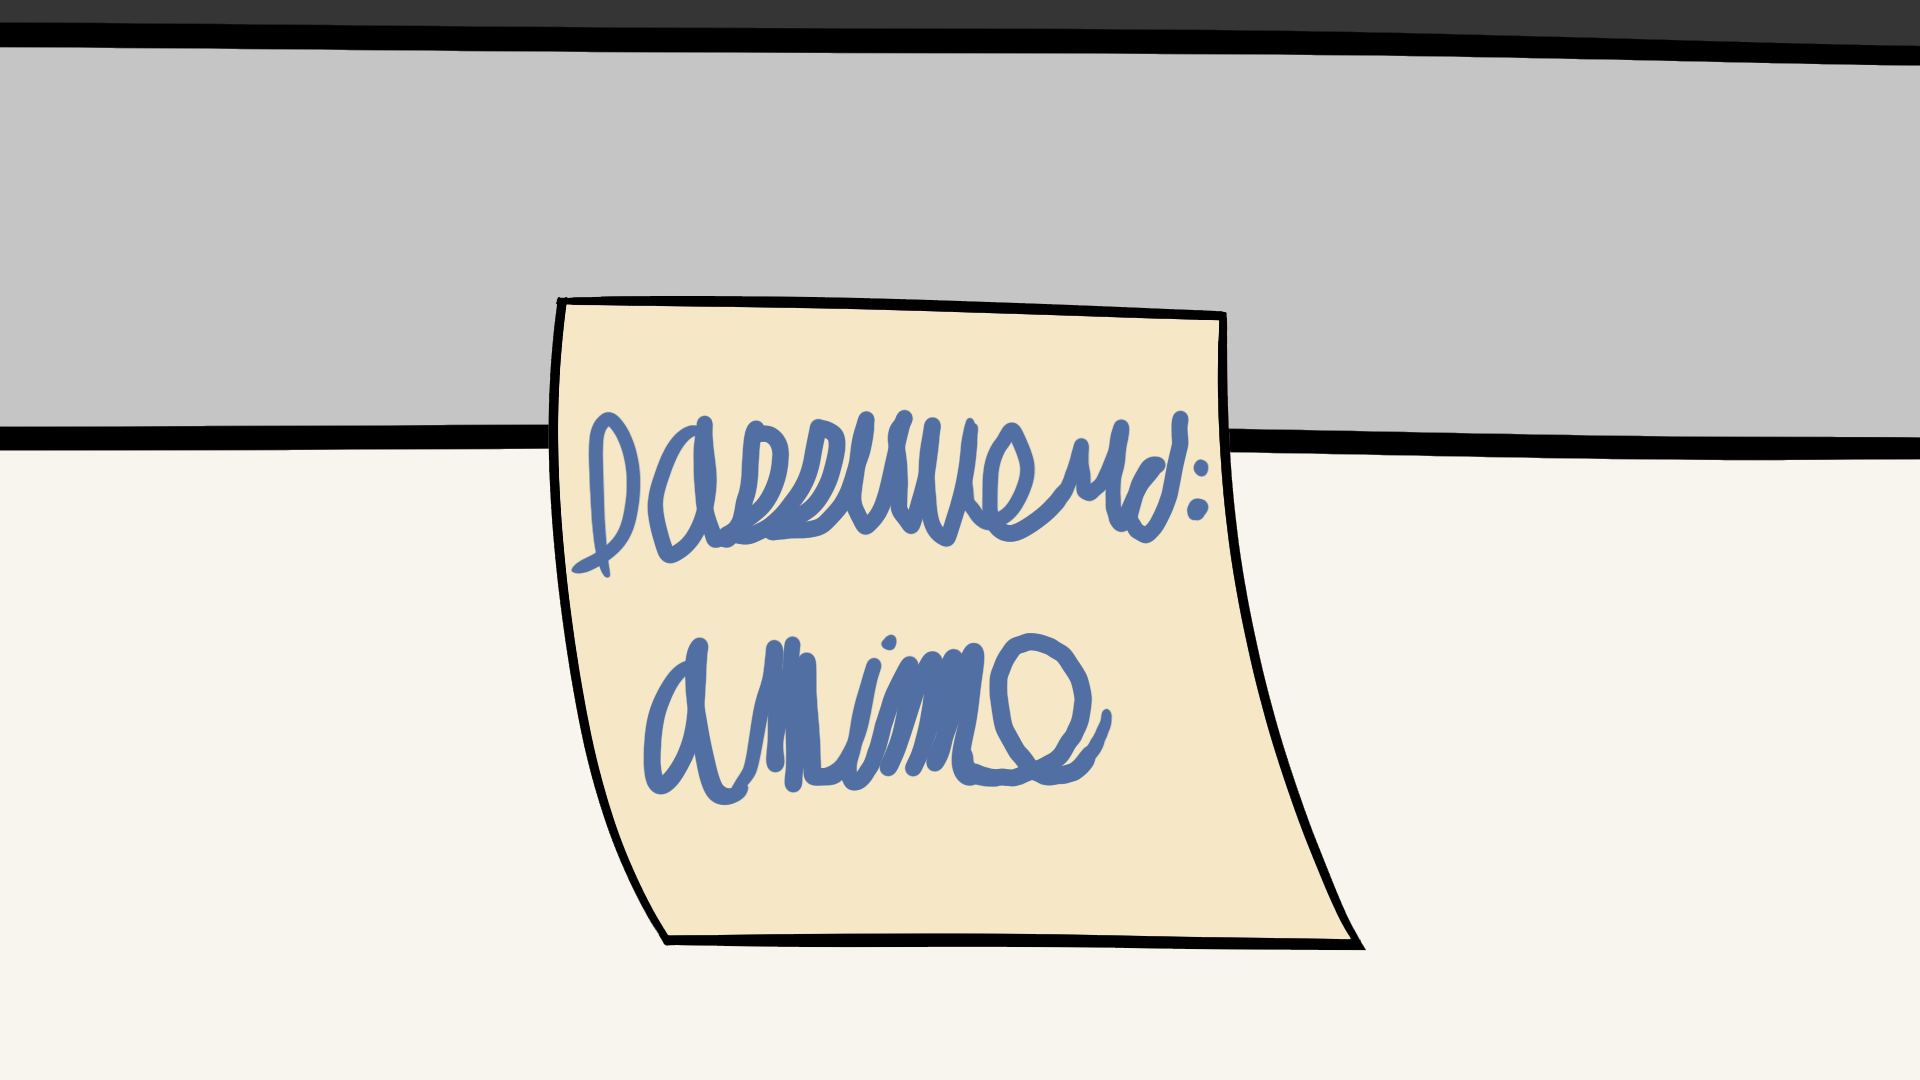 Password:
anime